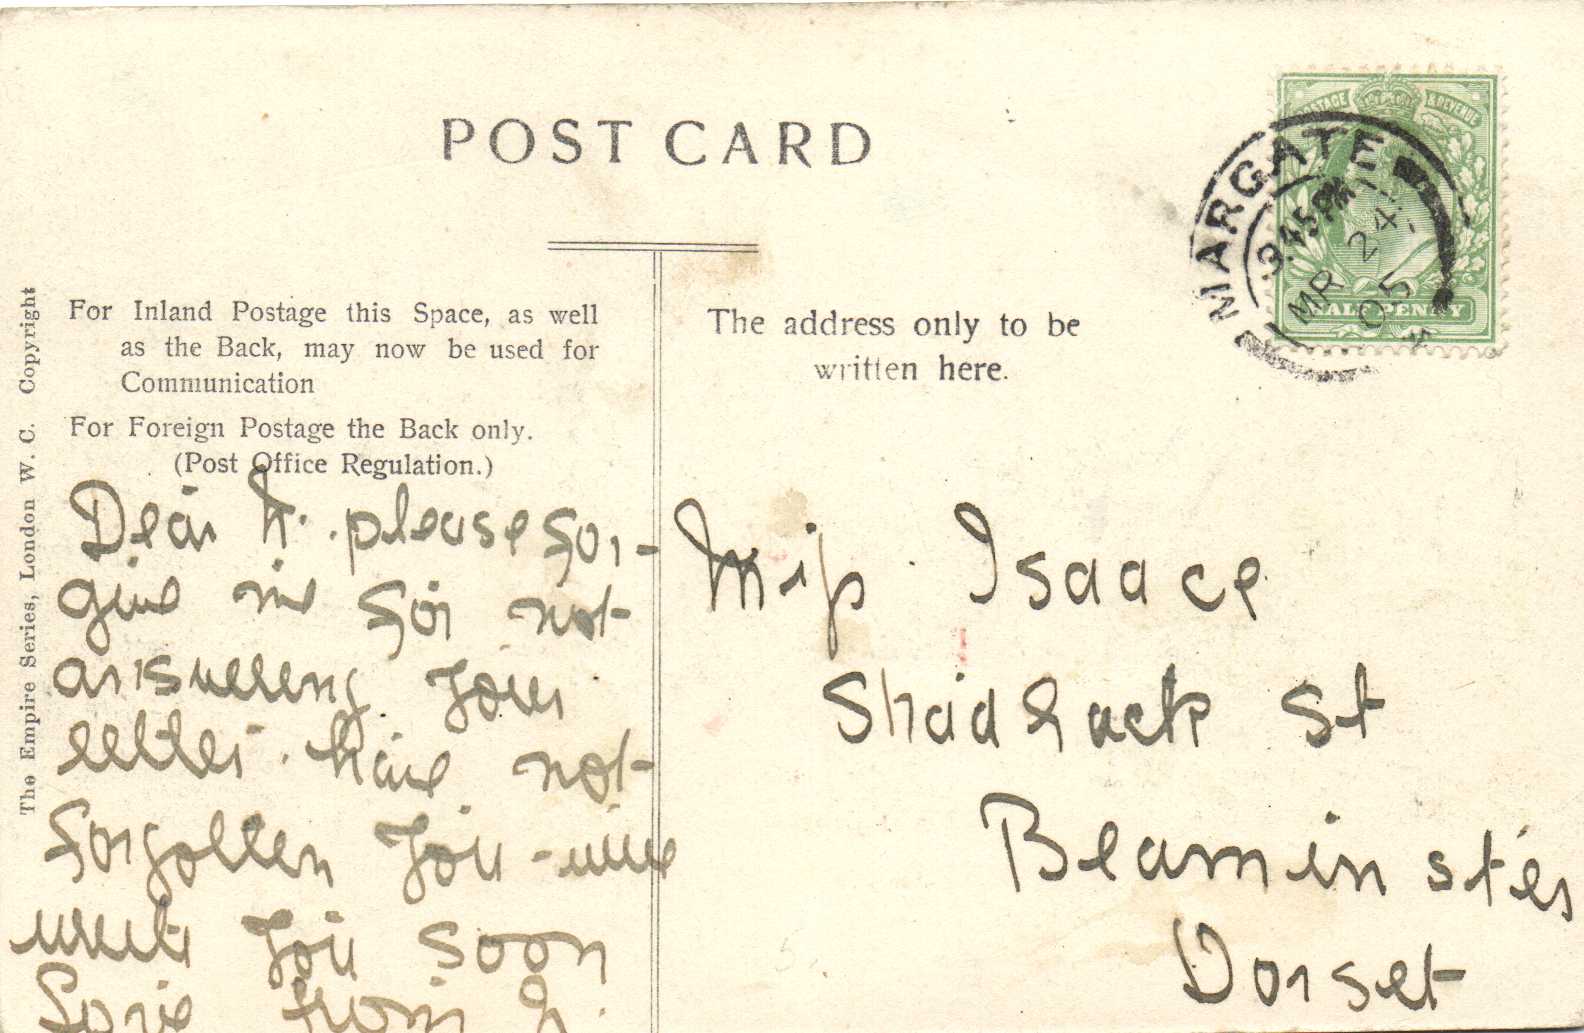 POST CARD
POSTAGE & REVENUE
MARGATE
9.45 PM
MR 24
05
HALF PENNY
The Empire Series, London W. C. Copyright
For Inland Postage this Space, as well
as the Back, may now be used for
Communication
For Foreign Postage the Back only.
(Post Office Regulation.)
The address only to be
written here.
Dear K. please for-
give me for not
answering your
letter. have not
forgotten you - will
write you soon
Love from
Miss Isaace
Shadrack St
Beaminster
Dorset